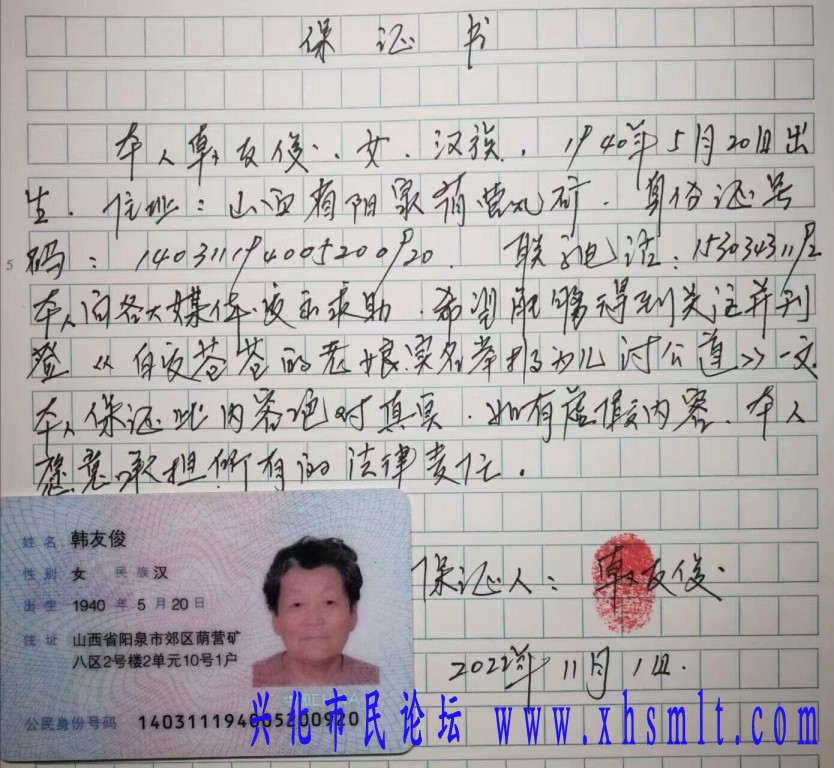 保证书
本人韩友俊、女、汉族、1940年5月20日出
生. 住址：山西省阳泉荫营矿. 身份证号
码：140311194005200920. 联系电话：15303431192
本人向各大媒体发出求助. 希望能够得到关注并刊
登《白发苍苍的老娘实名举报为儿讨公道》一文
本人保证此内容绝对真实. 如有虚假内容、本人
愿意承担所有的法律责任.
保证人：韩友俊
2022年11月1日.
姓名 韩友俊
性别 女 民族 汉
出生 1940 年 5 月 20 日
住址 山西省阳泉市郊区荫营矿
八区2号楼2单元10号1户
公民身份号码 140311194005200920
兴化市民论坛 www.xhsmlt.com